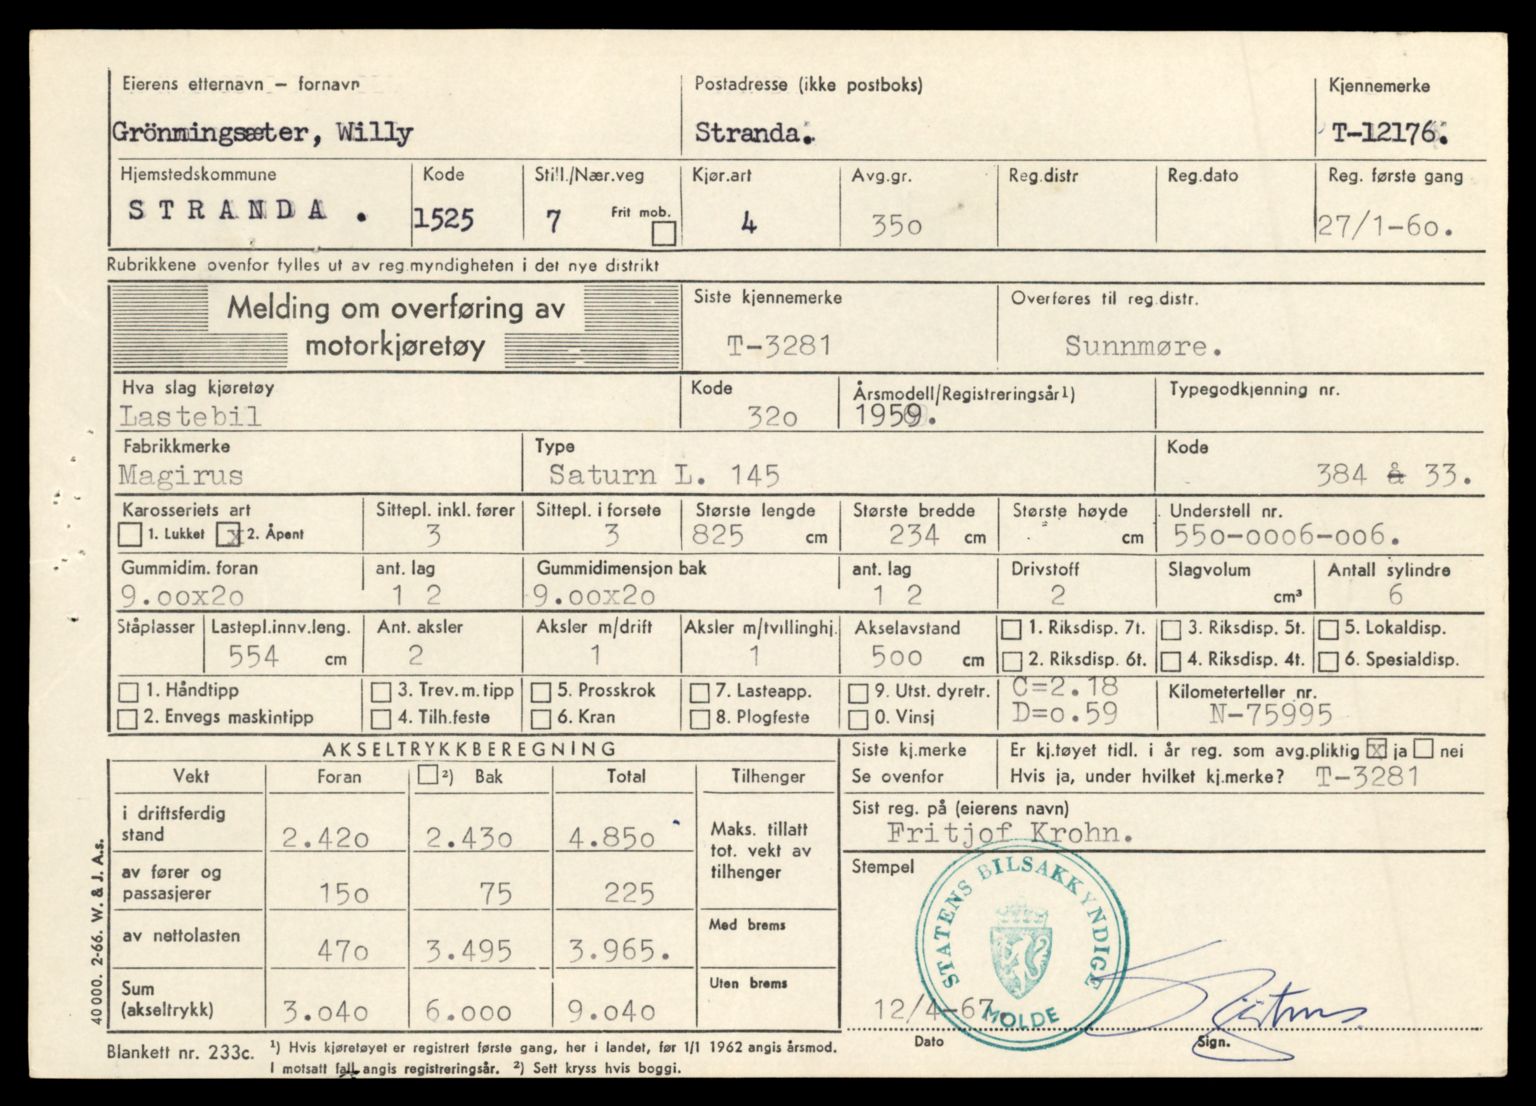 Eierens etternavn – fornavn Postadresse (ikke postboks) Kjennemerke
Grönmingsæter, Willy Stranda. T-12176.
Hjemstedskommune Kode Still./Nær.veg Kjør.art Avg.gr. Reg.distr Reg.dato Reg. første gang
STRANDA. 1525 7 Frit mob. 4 350 27/1-60.
Rubrikkene ovenfor fylles ut av reg.myndigheten i det nye distrikt
Melding om overføring av Siste kjennemerke Overføres til reg.distr.
motorkjøretøy T-3281 Sunnmøre.
Hva slag kjøretøy Kode Årsmodell/Registreringsår1) Typegodkjenning nr.
Lastebil 320 1959.
Fabrikkmerke Type Kode
Magirus Saturn L. 145 384 å 33.
Karosseriets art Sittepl. inkl. fører Sittepl. i forsete Største lengde Største bredde Største høyde Understell nr.
1. Lukket x 2. Åpent 3 3 825 cm 234 cm cm 550-0006-006.
Gummidim. foran ant. lag Gummidimensjon bak ant. lag Drivstoff Slagvolum Antall sylindre
9.00x20 1 2 9.00x20 1 2 2 cm³ 6
Ståplasser Lastepl.innv.leng. Ant. aksler Aksler m/drift Aksler m/tvillinghj. Akselavstand 1. Riksdisp. 7t. 3. Riksdisp. 5t. 5. Lokaldisp.
554 cm 2 1 1 500 cm 2. Riksdisp. 6t. 4. Riksdisp. 4t. 6. Spesialdisp.
1. Håndtipp 3. Trev.m.tipp 5. Prosskrok 7. Lasteapp. 9. Utst. dyretr. C=2.18 Kilometerteller nr.
2. Envegs maskintipp 4. Tilh.feste 6. Kran 8. Plogfeste 0. Vinsj D=0.59 N-75995
AKSELTRYKKBEREGNING Siste kj.merke Er kj.tøyet tidl. i år reg. som avg.pliktig x ja nei
Vekt Foran 2) Bak Total Tilhenger Se ovenfor Hvis ja, under hvilket kj.merke? T-3281
i driftsferdig stand 2.420 2.430 4.850 Maks. tillatt tot. vekt av tilhenger Sist reg. på (eierens navn)
Fritjof Krohn.
av fører og passasjerer 150 75 225 Stempel
av nettolasten 470 3.495 3.965. Med brems
STATENS BILSAKKYNDIGE
MOLDE
Sum (akseltrykk) 3.040 6.000 9.040 Uten brems 12/4-67.
Dato Sign.
Blankett nr. 233c. 1) Hvis kjøretøyet er registrert første gang, her i landet, før 1/1 1962 angis årsmod.
I motsatt fall angis registreringsår. 2) Sett kryss hvis boggi.
40000. 2-66. W. & J. A.s.